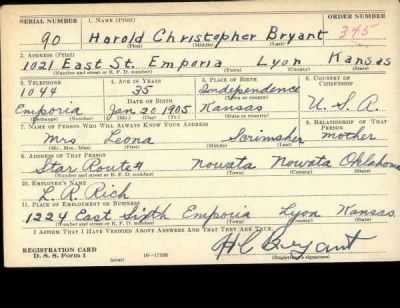 SERIAL NUMBER 1. NAME (Print) ORDER NUMBER
90 Harold Christopher Bryant 345
(First) (Middle) (Last)
2. ADDRESS (Print)
1021 East St. Emporia Lyon Kansas
(Number and street or R. F. D. number) (Town) (County) (State)
3. TELEPHONE 4. AGE IN YEARS 5. PLACE OF BIRTH 6. COUNTRY OF CITIZENSHIP
1044 35 Independence
DATE OF BIRTH (Town or county)
Emporia Jan. 20 1905 Kansas U. S. A.
(Exchange) (Mo.) (Day) (Yr.) (State or country)
7. NAME OF PERSON WHO WILL ALWAYS KNOW YOUR ADDRESS 8. RELATIONSHIP OF THAT PERSON
Mrs Leona Scrimsher mother
(Mr., Mrs., Miss) (First) (Middle) (Last)
9. ADDRESS OF THAT PERSON
Star Route 4 Nowata Nowata Oklahoma
(Number and street or R. F. D. number) (Town) (County) (State)
10. EMPLOYER'S NAME
L. A. Rich
11. PLACE OF EMPLOYMENT OR BUSINESS
1224 East Sixth Emporia Lyon Kansas
(Number and street or R. F. D. number) (Town) (County) (State)
I AFFIRM THAT I HAVE VERIFIED ABOVE ANSWERS AND THAT THEY ARE TRUE.
H C Bryant
REGISTRATION CARD
D. S. S. Form 1 (over) 16—17105 (Registrant's signature)